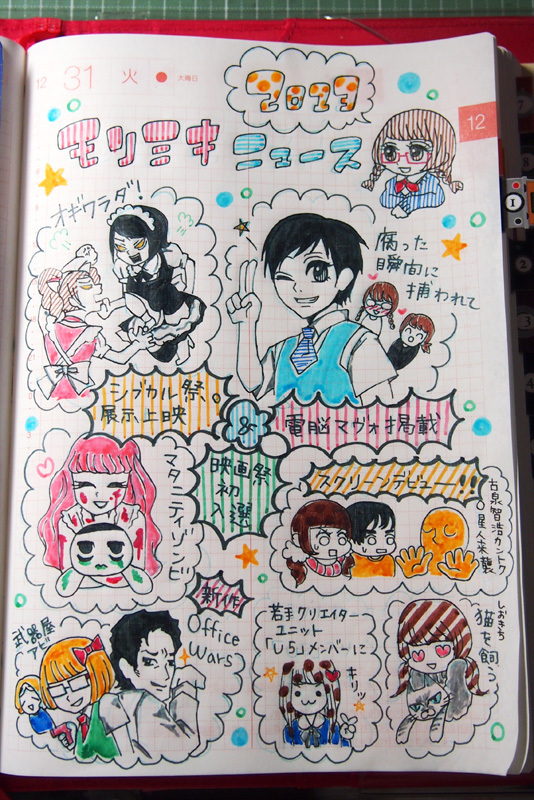 12 31 火 大曜日
2013
12
モリミキニュース
オギワラダ!
腐った
瞬間に
捕われて
シブカル祭。
展示上映
&
電脳マヴォ掲載!
映画祭
初
入選
マタニティゾンビ
スクリーンデビュー!!!
古泉智浩カントク
星人来襲
新作
Office
Wars
武器屋
アビー
若手クリエイター
ユニット
「U5」メンバーに
キリッ
しおきち
猫を飼う
1
7
8
2
3